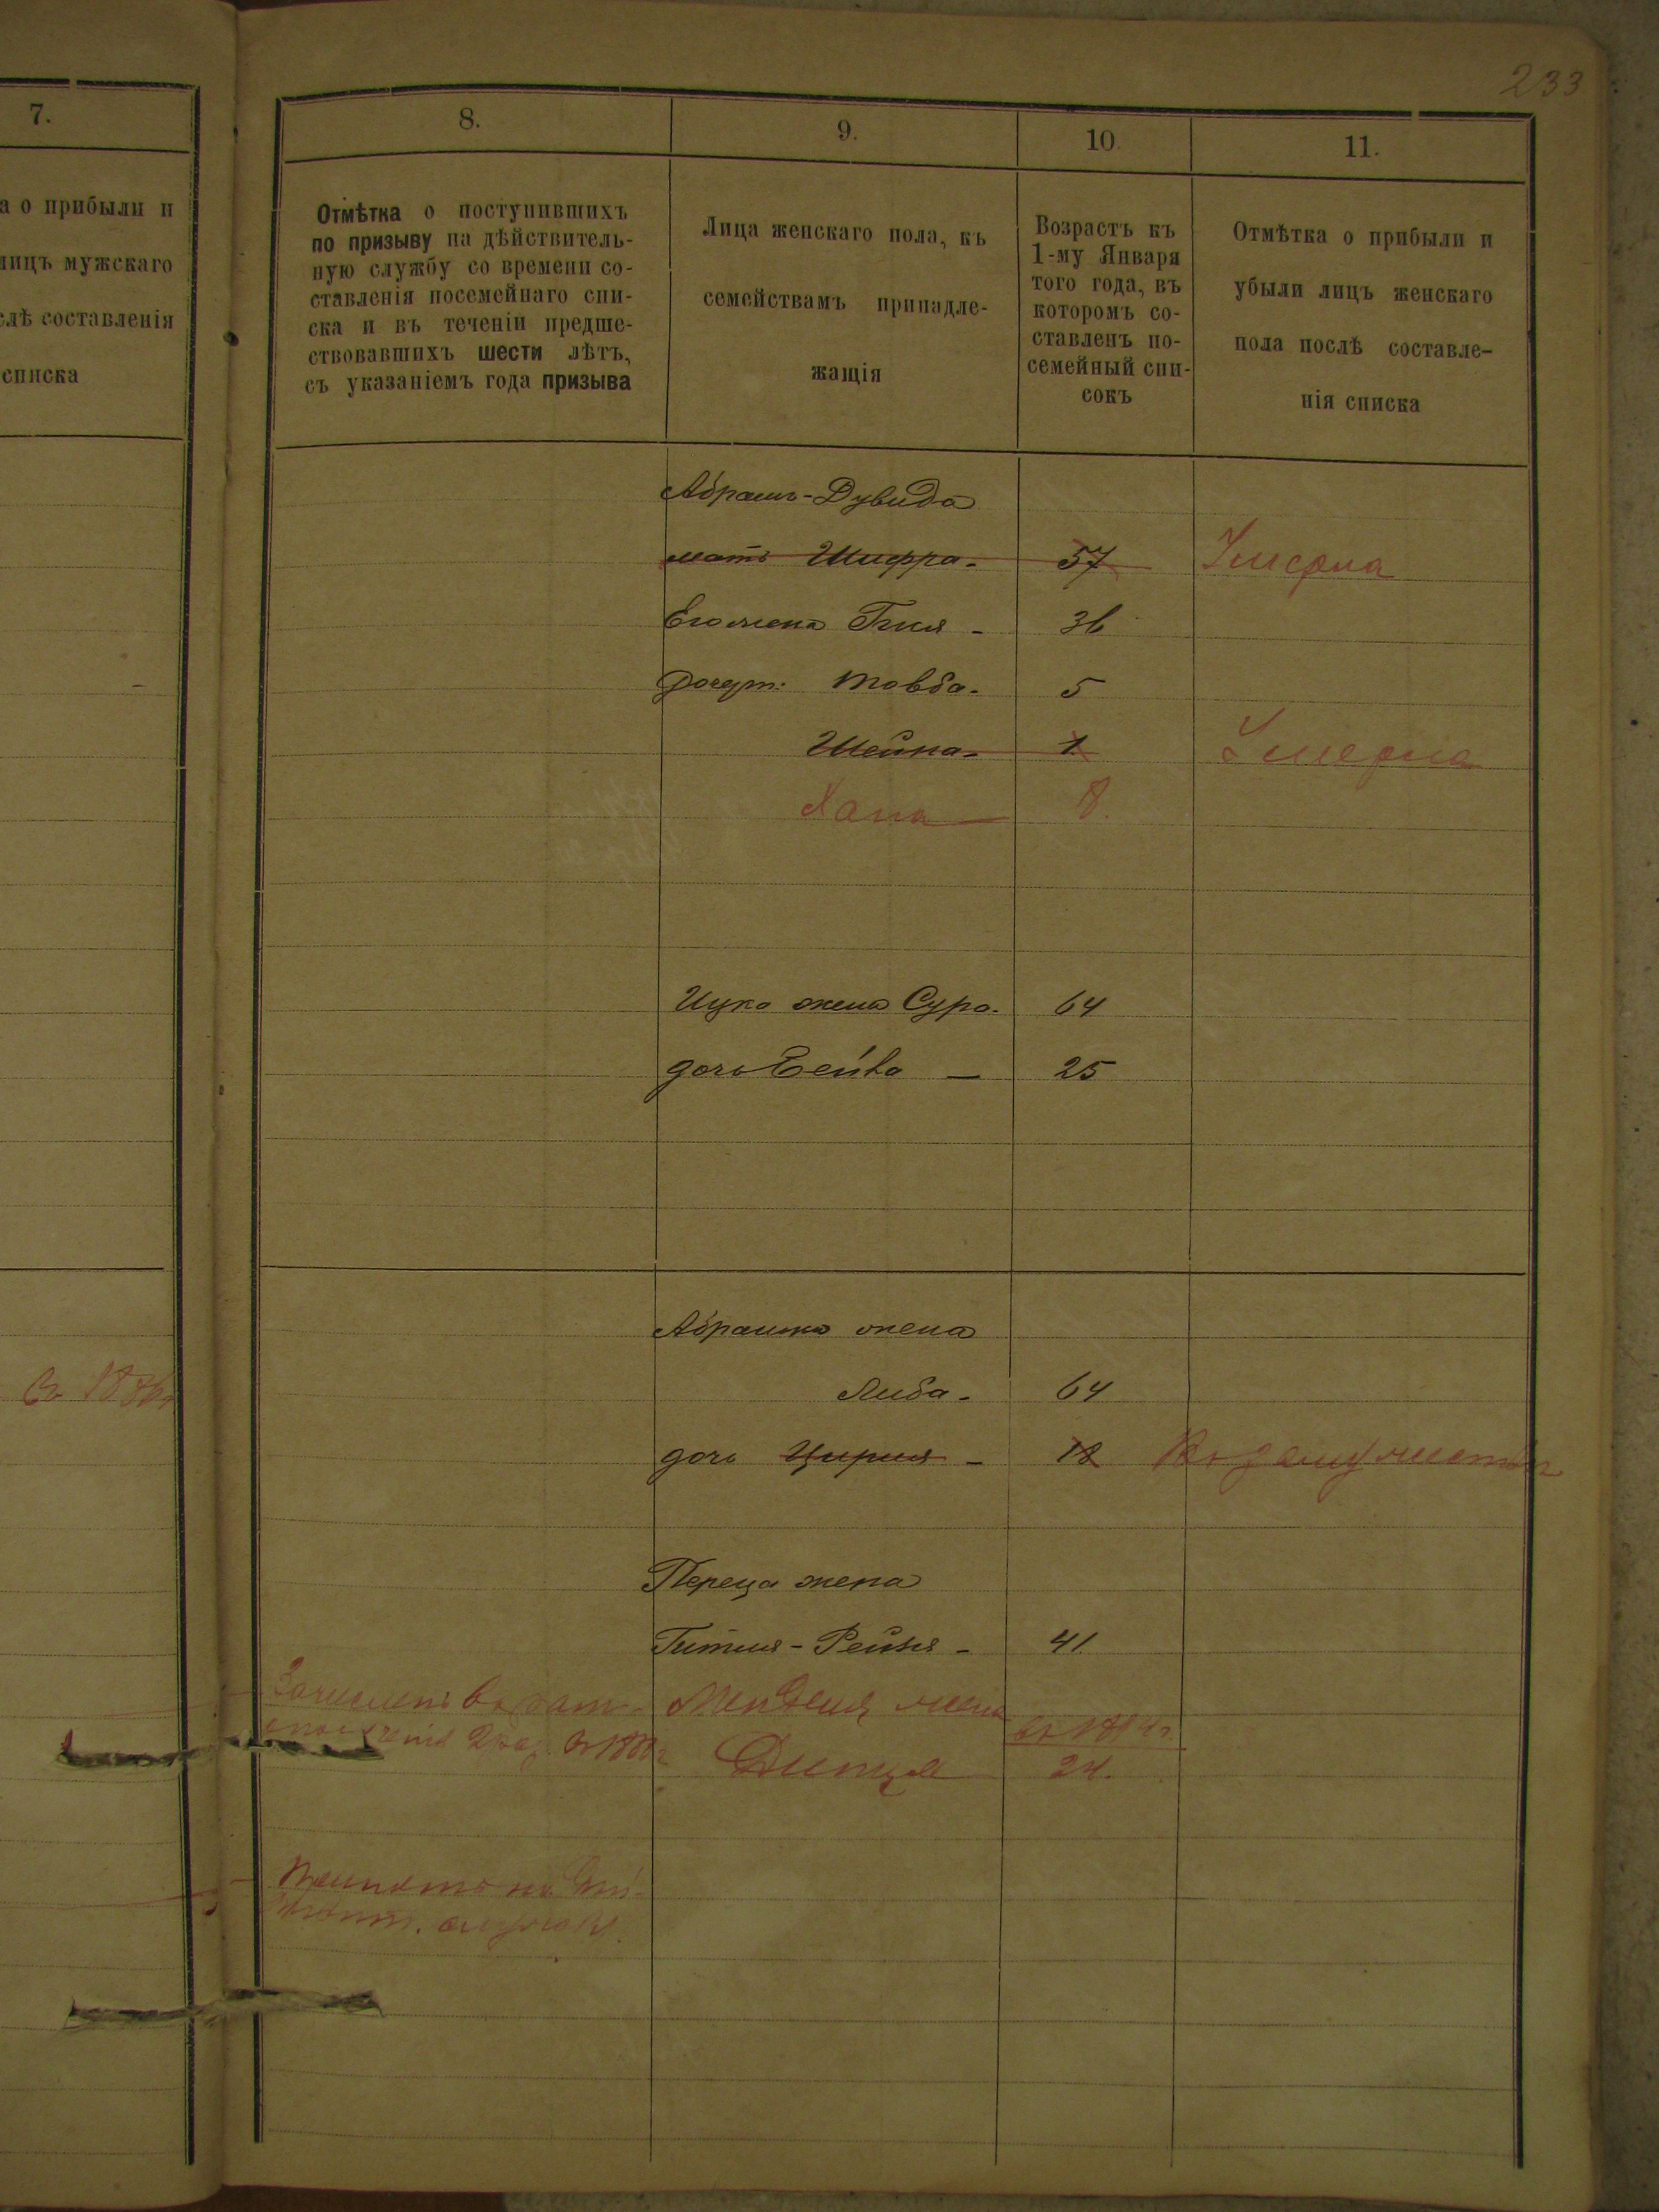 233
7.
а о прибыли и
лицъ мужскаго
слѣ составленія
списка
8.
9.
10.
11.
Отмѣтка о поступившихъ
по призыву на дѣйствитель-
ную службу со времени со-
ставленія посемейнаго спи-
ска и въ теченіи предше-
ствовавшихъ шести лѣтъ,
съ указаніемъ года призыва
Лица женскаго пола, къ
семействамъ принадле-
жащія
Возрастъ къ
1-му Января
того года, въ
которомъ со-
ставленъ по-
семейный спи-
сокъ
Отмѣтка о прибыли и
убыли лицъ женскаго
пола послѣ составле-
нія списка
Абрамъ-Дувида
мать Шифра- 57 Умерла
Его жена - 36
дочери: Товба- 5
Шейна- 1 Умерла
Хана 8.
Ицка жена Сура- 64
дочь Бейла — 25
Абрамка жена
Либа- 64
дочь Цирля - 18 Въ замужествѣ
Переца жена
Гитля-Рейзя - 41
Зачисленъ въ рат.
ополченія 2 раз. въ 188 г
Менделя жена
24.
Принятъ на дѣй-
ствит. службу.